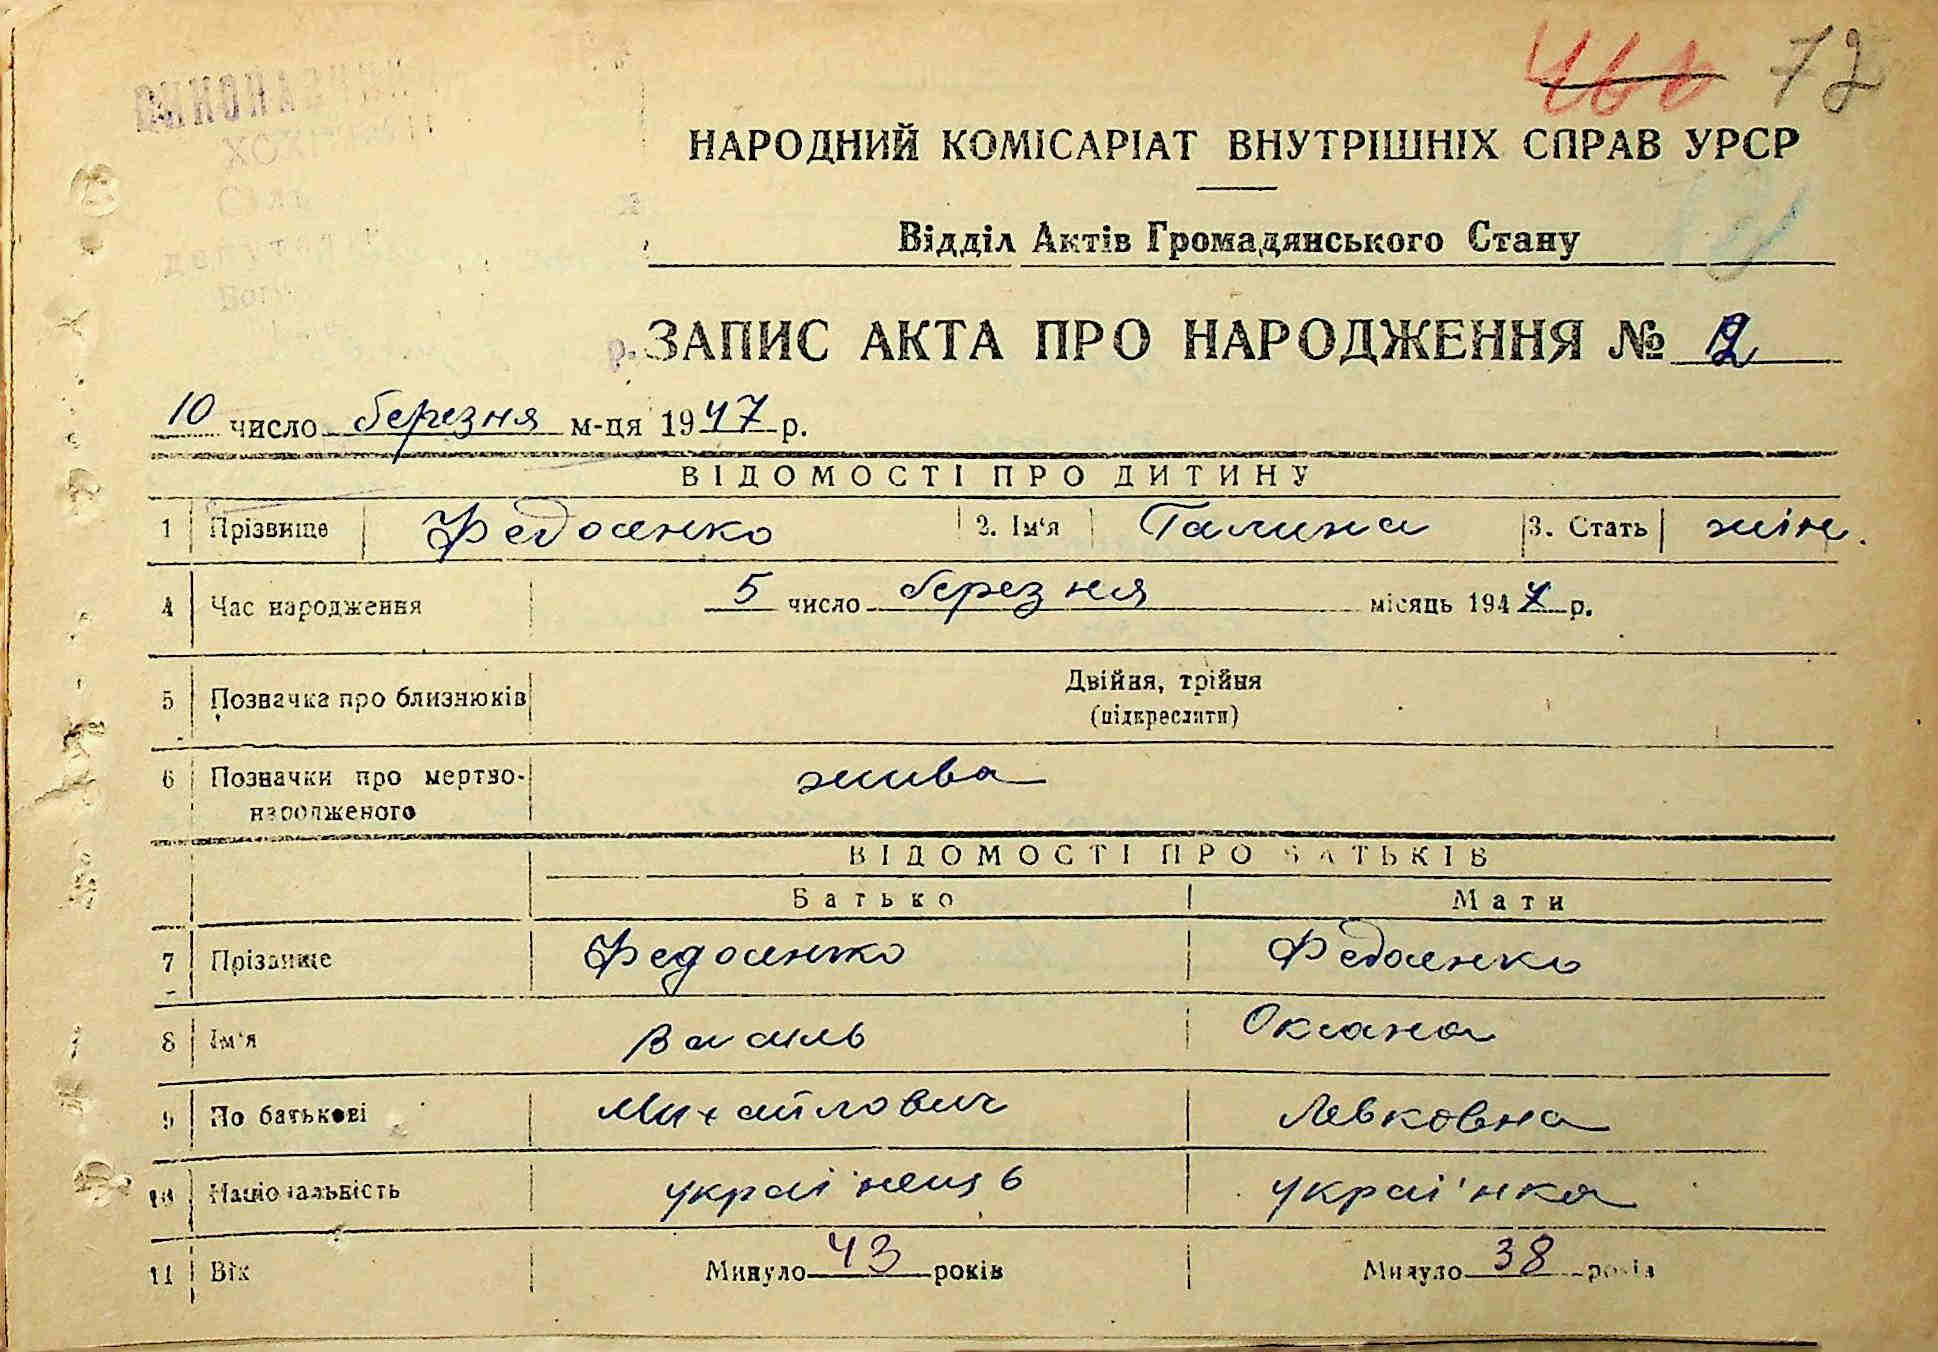 460 72
ВИКОНАВЧИЙ
НАРОДНИЙ КОМІСАРІАТ ВНУТРІШНІХ СПРАВ УРСР
Відділ Актів Громадянського Стану
р. ЗАПИС АКТА ПРО НАРОДЖЕННЯ № 2
10 число березня м-ця 1947 р.
ВІДОМОСТІ ПРО ДИТИНУ
1 Прізвище Федоенко 2. Ім'я Галина 3. Стать жін.
4 Час народження 5 число березня місяць 1947 р.
5 Позначка про близнюків Двійня, трійня
(підкреслити)
6 Позначки про мертво-
народженого жива
ВІДОМОСТІ ПРО БАТЬКІВ
Батько Мати
7 Прізвище Федоенко Федоенко
8 Ім'я Василь Оксана
9 По батькові Михайлович Левковна
10 Національність украі'нець украі'нка
11 Вік Минуло 43 років Минуло 38 років